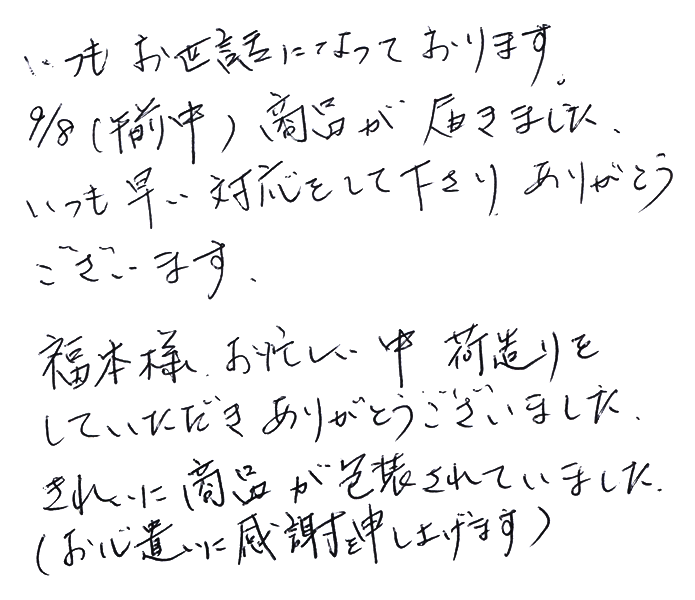 いつもお世話になっております。
9/8(午前中)商品が届きました、
いつも早い対応をして下さり ありがとう
ございます、
福本様、お忙しい中 荷造りを
していただき ありがとうございました、
きれいに商品が包装されていました、
(お心遣いに感謝を申し上げます)